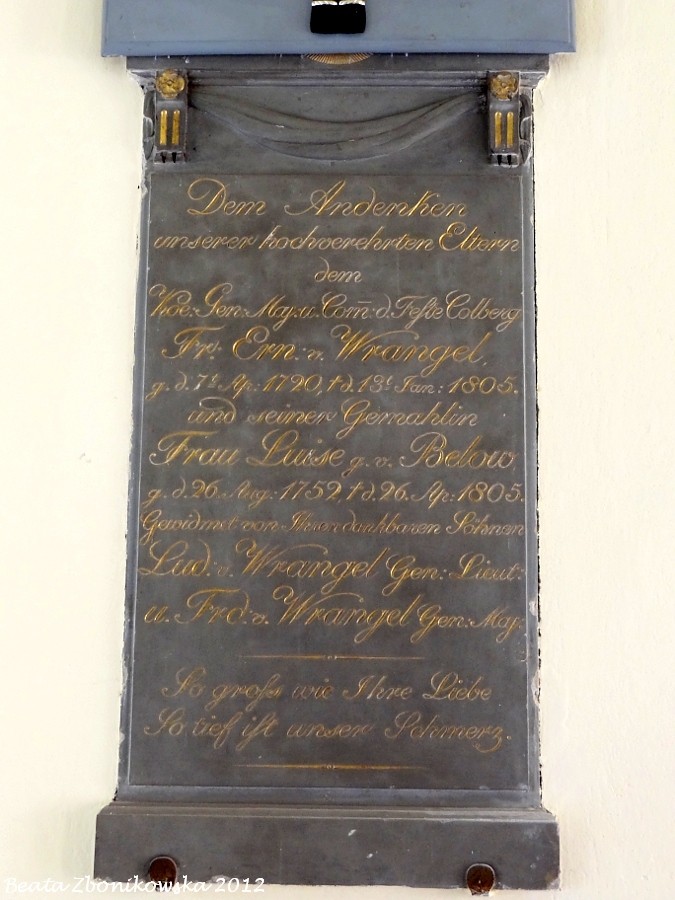 Dem Andenken
unserer hochverehrten Eltern
dem
Koe: Gen: Maj: u. Com̅: d. Feſte Colberg
Frd: Ern: v. Wrangel,
g. d. 7t Ap: 1720, † d. 13t Jan: 1805.
und seiner Gemahlin
Frau Luise g. v. Below
g. d. 26. Aug: 1752, † d. 26. Ap: 1805.
Gewidmet von Ihren dankbaren Söhnen
Lud: v. Wrangel Gen: Lieut:
u. Frd: v. Wrangel Gen: Maj:
So groſs wie Ihre Liebe
So tief iſt unser Schmerz.
Beata Zbonikowska 2012